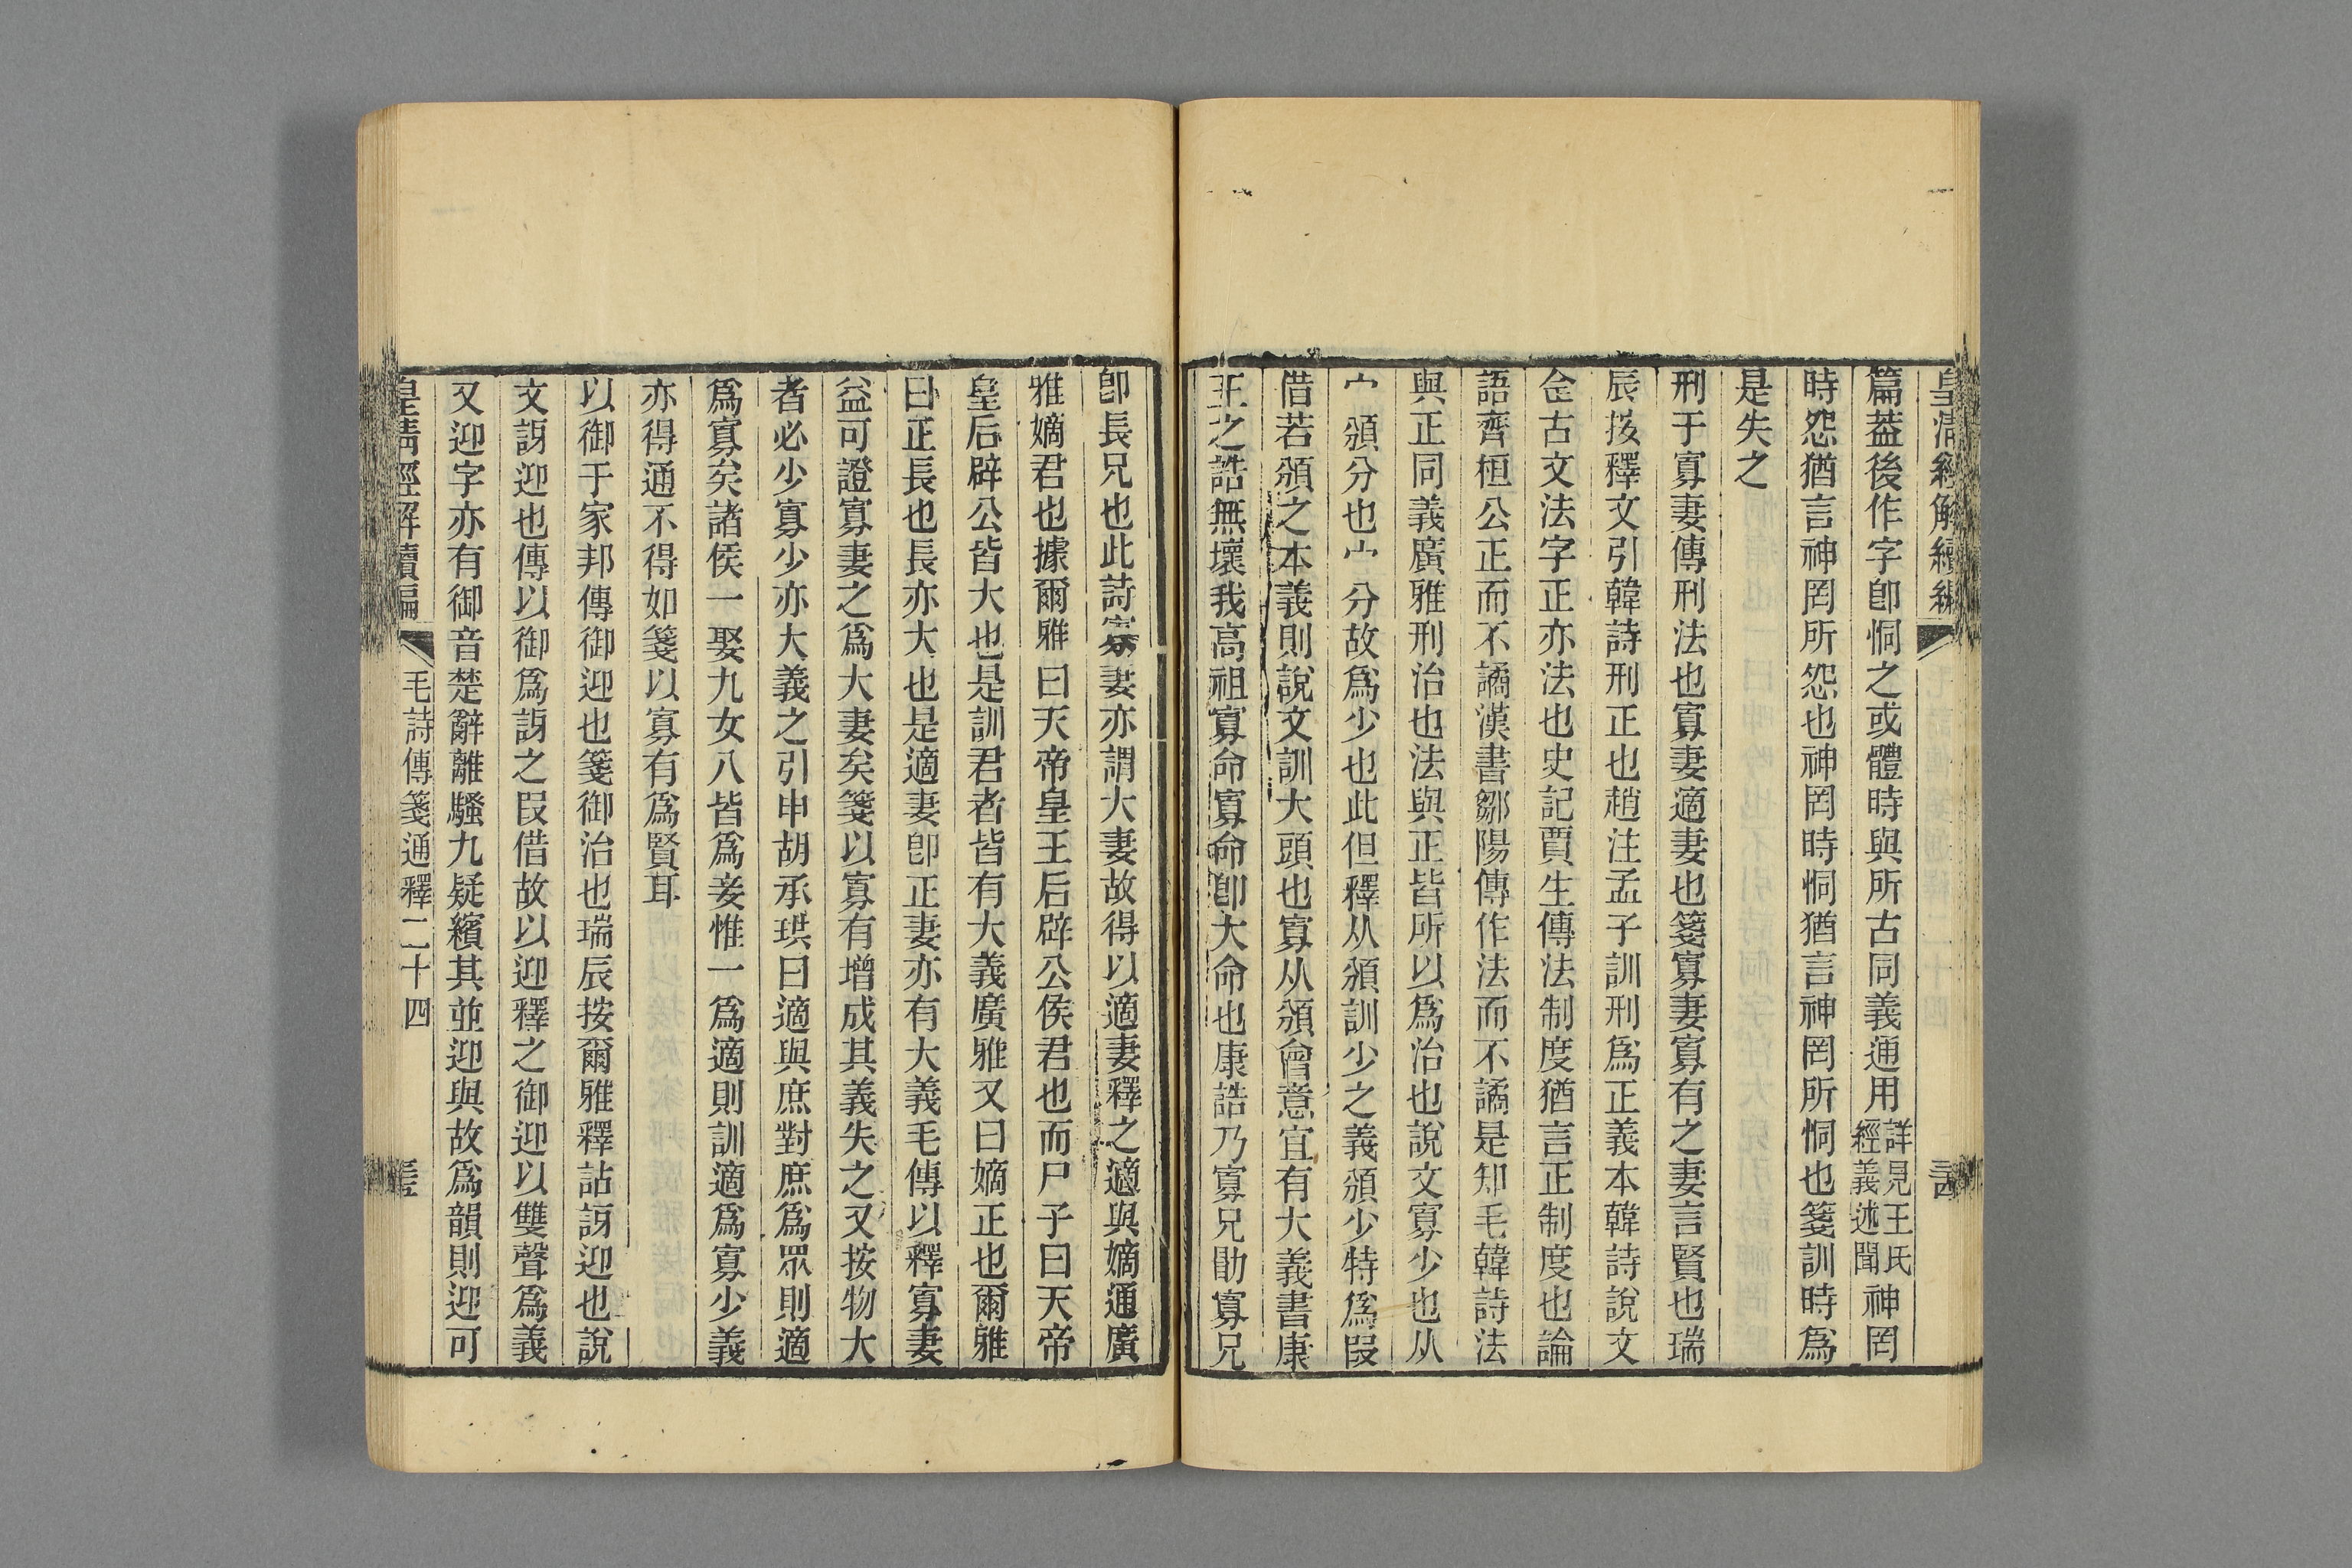 皇清經解續編
篇蓋後作字卽恫之或體時與所古同義通用詳見王氏經義述聞神罔
時怨猶言神罔所怨也神罔時恫猶言神罔所恫也箋訓時爲
是失之
刑于寡妻傳刑法也寡妻適妻也箋寡妻寡有之妻言賢也瑞
辰按釋文引韓詩刑正也趙注孟子訓刑爲正義本韓詩說文
佱古文法字正亦法也史記賈生傳法制度猶言正制度也論
語齊桓公正而不譎漢書鄒陽傳作法而不譎是知毛韓詩法
與正同義廣雅刑治也法與正皆所以爲治也說文寡少也从
宀頒分也宀分故爲少也此但釋从頒訓少之義頒少特爲叚
借若頒之本義則說文訓大頭也寡从頒會意宜有大義書康
王之誥無壞我高祖寡命寡命卽大命也康誥乃寡兄勖寡兄
卽長兄也此詩寡妻亦謂大妻故得以適妻釋之適與嫡通廣
雅嫡君也據爾雅曰天帝皇王后辟公侯君也而尸子曰天帝
皇后辟公皆大也是訓君者皆有大義廣雅又曰嫡正也爾雅
曰正長也長亦大也是適妻卽正妻亦有大義毛傳以釋寡妻
益可證寡妻之爲大妻矣箋以寡有增成其義失之又按物大
者必少寡少亦大義之引申胡承珙曰適與庶對庶爲眾則適
爲寡矣諸侯一娶九女八皆爲妾惟一爲適則訓適爲寡少義
亦得通不得如箋以寡有爲賢耳
以御于家邦傳御迎也箋御治也瑞辰按爾雅釋詁訝迎也說
文訝迎也傳以御爲訝之叚借故以迎釋之御迎以雙聲爲義
又迎字亦有御音楚辭離騷九疑繽其並迎與故爲韻則迎可
皇清經解續編 毛詩傳箋通釋二十四